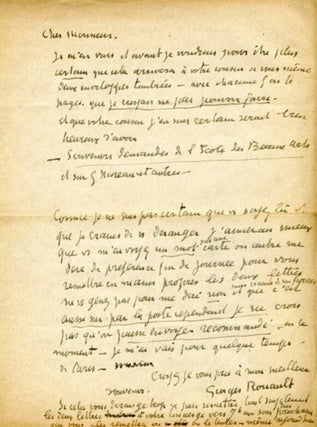 Cher Monsieur.
Je m'en vais et avant je voudrais pour être plus
certain que cela arrivera à votre cousin ou vous même
deux enveloppes timbrées — avec chacune
pages. que je croyais ne pas pouvoir faire.
et que votre cousin j'en suis certain serait bien
heureux d'avoir
— Souvenirs demandés de l'école des Beaux Arts
et sur G Moreau et autres —
Comme je ne suis pas certain que vs soyez là
que je crains de vs déranger j'aimerais mieux
que vs m'envoyez un mot sur une carte ou autre me
dire de préférence fin de journée pour vous
remettre en mains propres les deux lettres
ne vs gênez pas pour me dire non et que c'est
aussi sur par la poste cependant je ne crois
pas qu'on puisse envoyer recommandé en ce
moment — Je m'en vais pour quelque temps
de Paris —
Croyez je vous prie à mon meilleur
souvenir.
Georges Rouault
Si cela vous dérange trop je puis remettre tout simplement
les deux lettres à votre concierge vers 7h